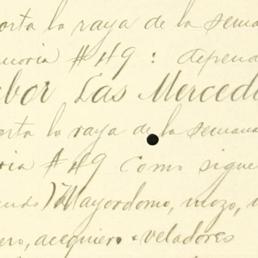 porta la raya de la semana
moria #49: depend
bor Las Mercede
porta la raya de la semana
ria #49 Como sigue
endo) Mayordomo, mozo,
ero, acequiero - veladores